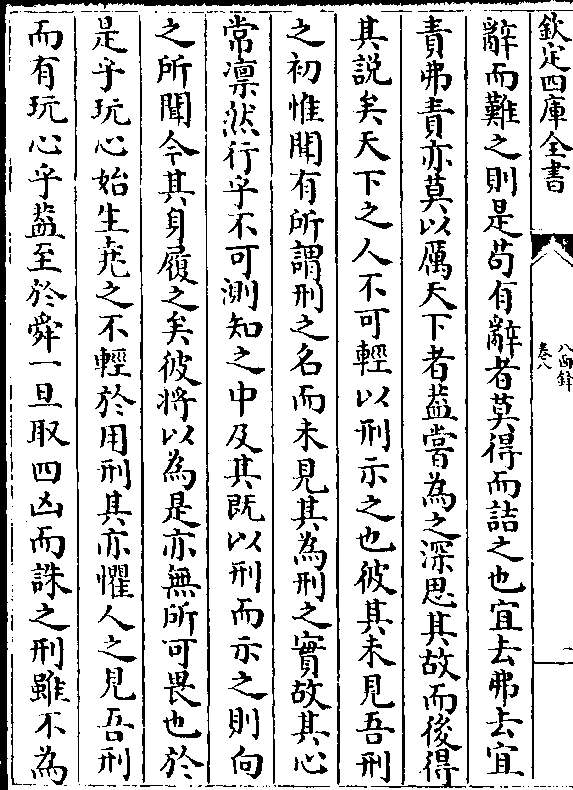 欽定四庫全書
八面鋒
卷八
二
辭而難之則是苟有辭者莫得而詰之也宜去弗去宜
責弗責亦莫以厲天下者葢嘗為之深思其故而後得
其説矣天下之人不可輕以刑示之也彼其未見吾刑
之初惟聞有所謂刑之名而未見其為刑之實故其心
常凛然行乎不可測知之中及其既以刑而示之則向
之所聞今其身履之矣彼将以為是亦無所可畏也於
是乎玩心始生堯之不輕於用刑其亦懼人之見吾刑
而有玩心乎葢至於舜一旦取四凶而誅之刑雖不為